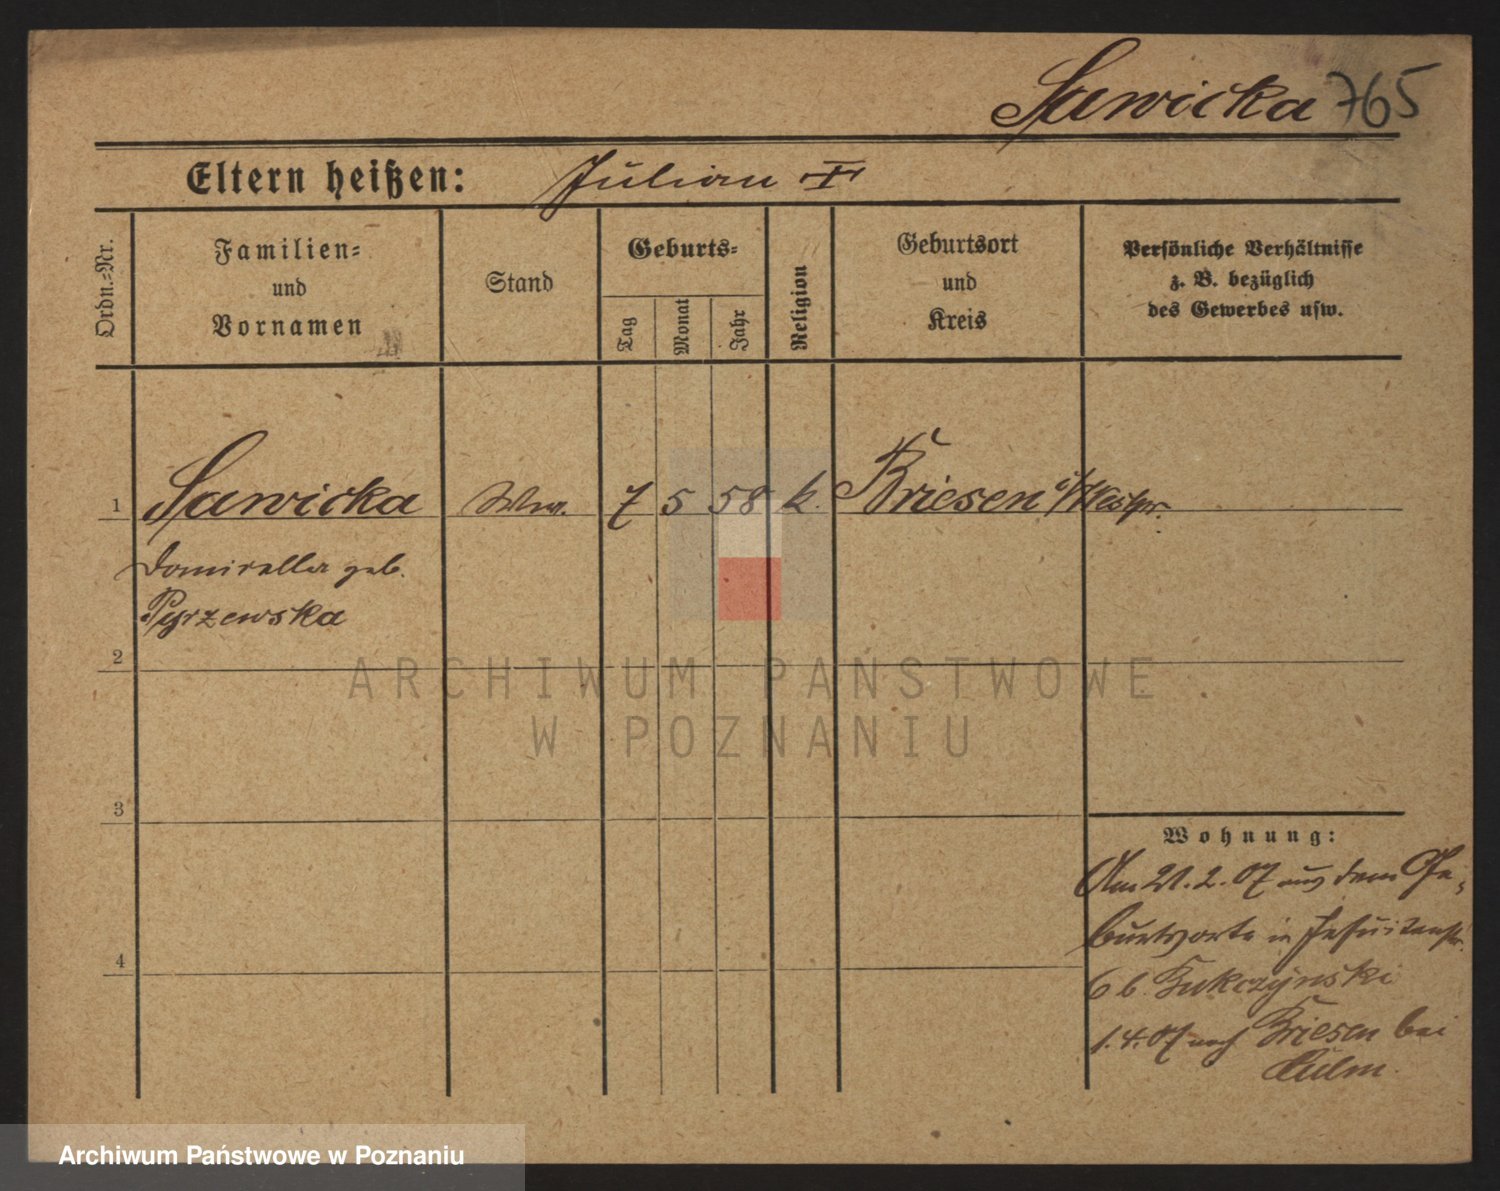 Sawicka 765
Eltern heißen: Julian †
Ordn.=Nr.
Familien=
und
Vornamen
Stand
Geburts=
Tag
Monat
Jahr
Religion
Geburtsort
und
Kreis
Persönliche Verhältnisse
z. B. bezüglich
des Gewerbes usw.
1 Sawicka Ww. 7 5 58 k. Briesen i/Westpr.
geb.
Pyrzewska
2
3
4
Wohnung:
Am 21.2.07 aus dem Ge=
burtsorte in Jesuitenstr.
6 b.
1.4.07 nach Briesen bei
Culm.
ARCHIWUM PAŃSTWOWE
W POZNANIU
Archiwum Państwowe w Poznaniu